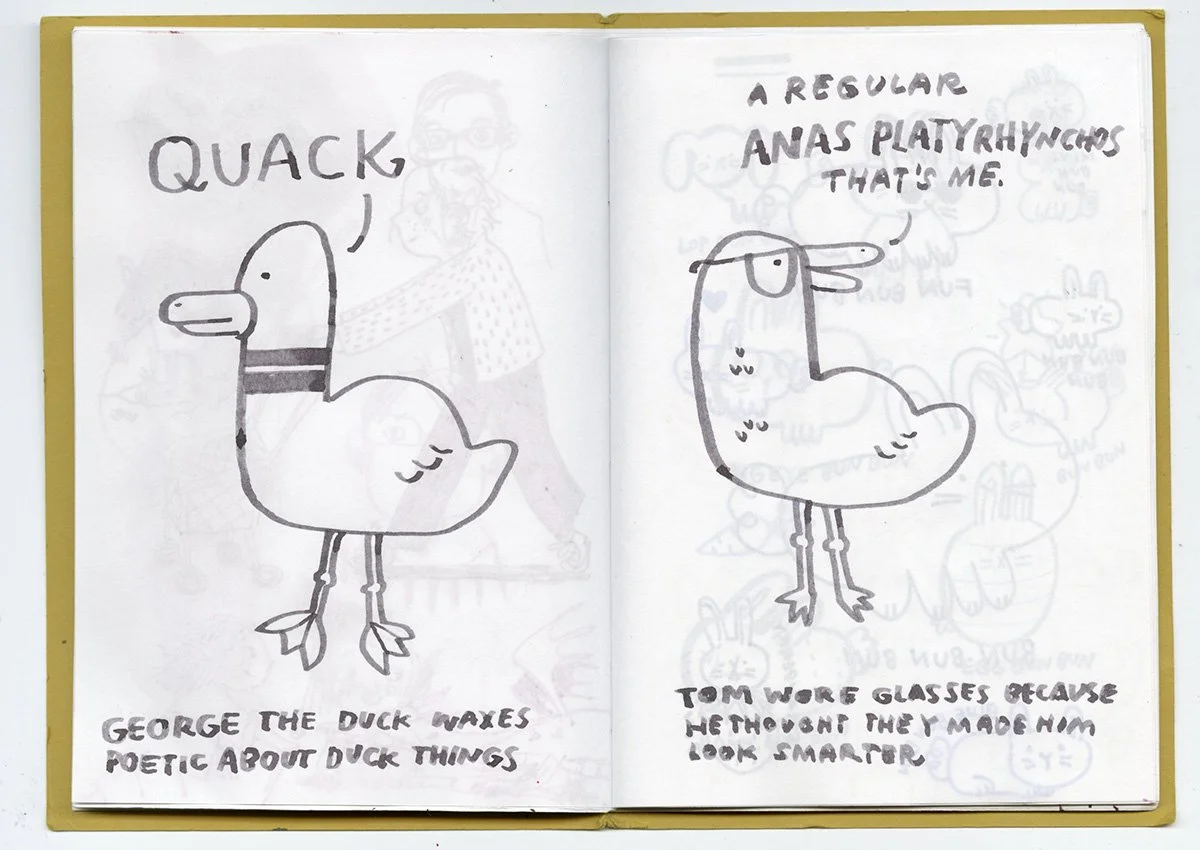 QUACK
GEORGE THE DUCK WAXES
POETIC ABOUT DUCK THINGS
A REGULAR
ANAS PLATYRHYNCHOS
THAT'S ME.
TOM WORE GLASSES BECAUSE
HE THOUGHT THEY MADE HIM
LOOK SMARTER
FUN BUN BUN
BUN BUN BUN